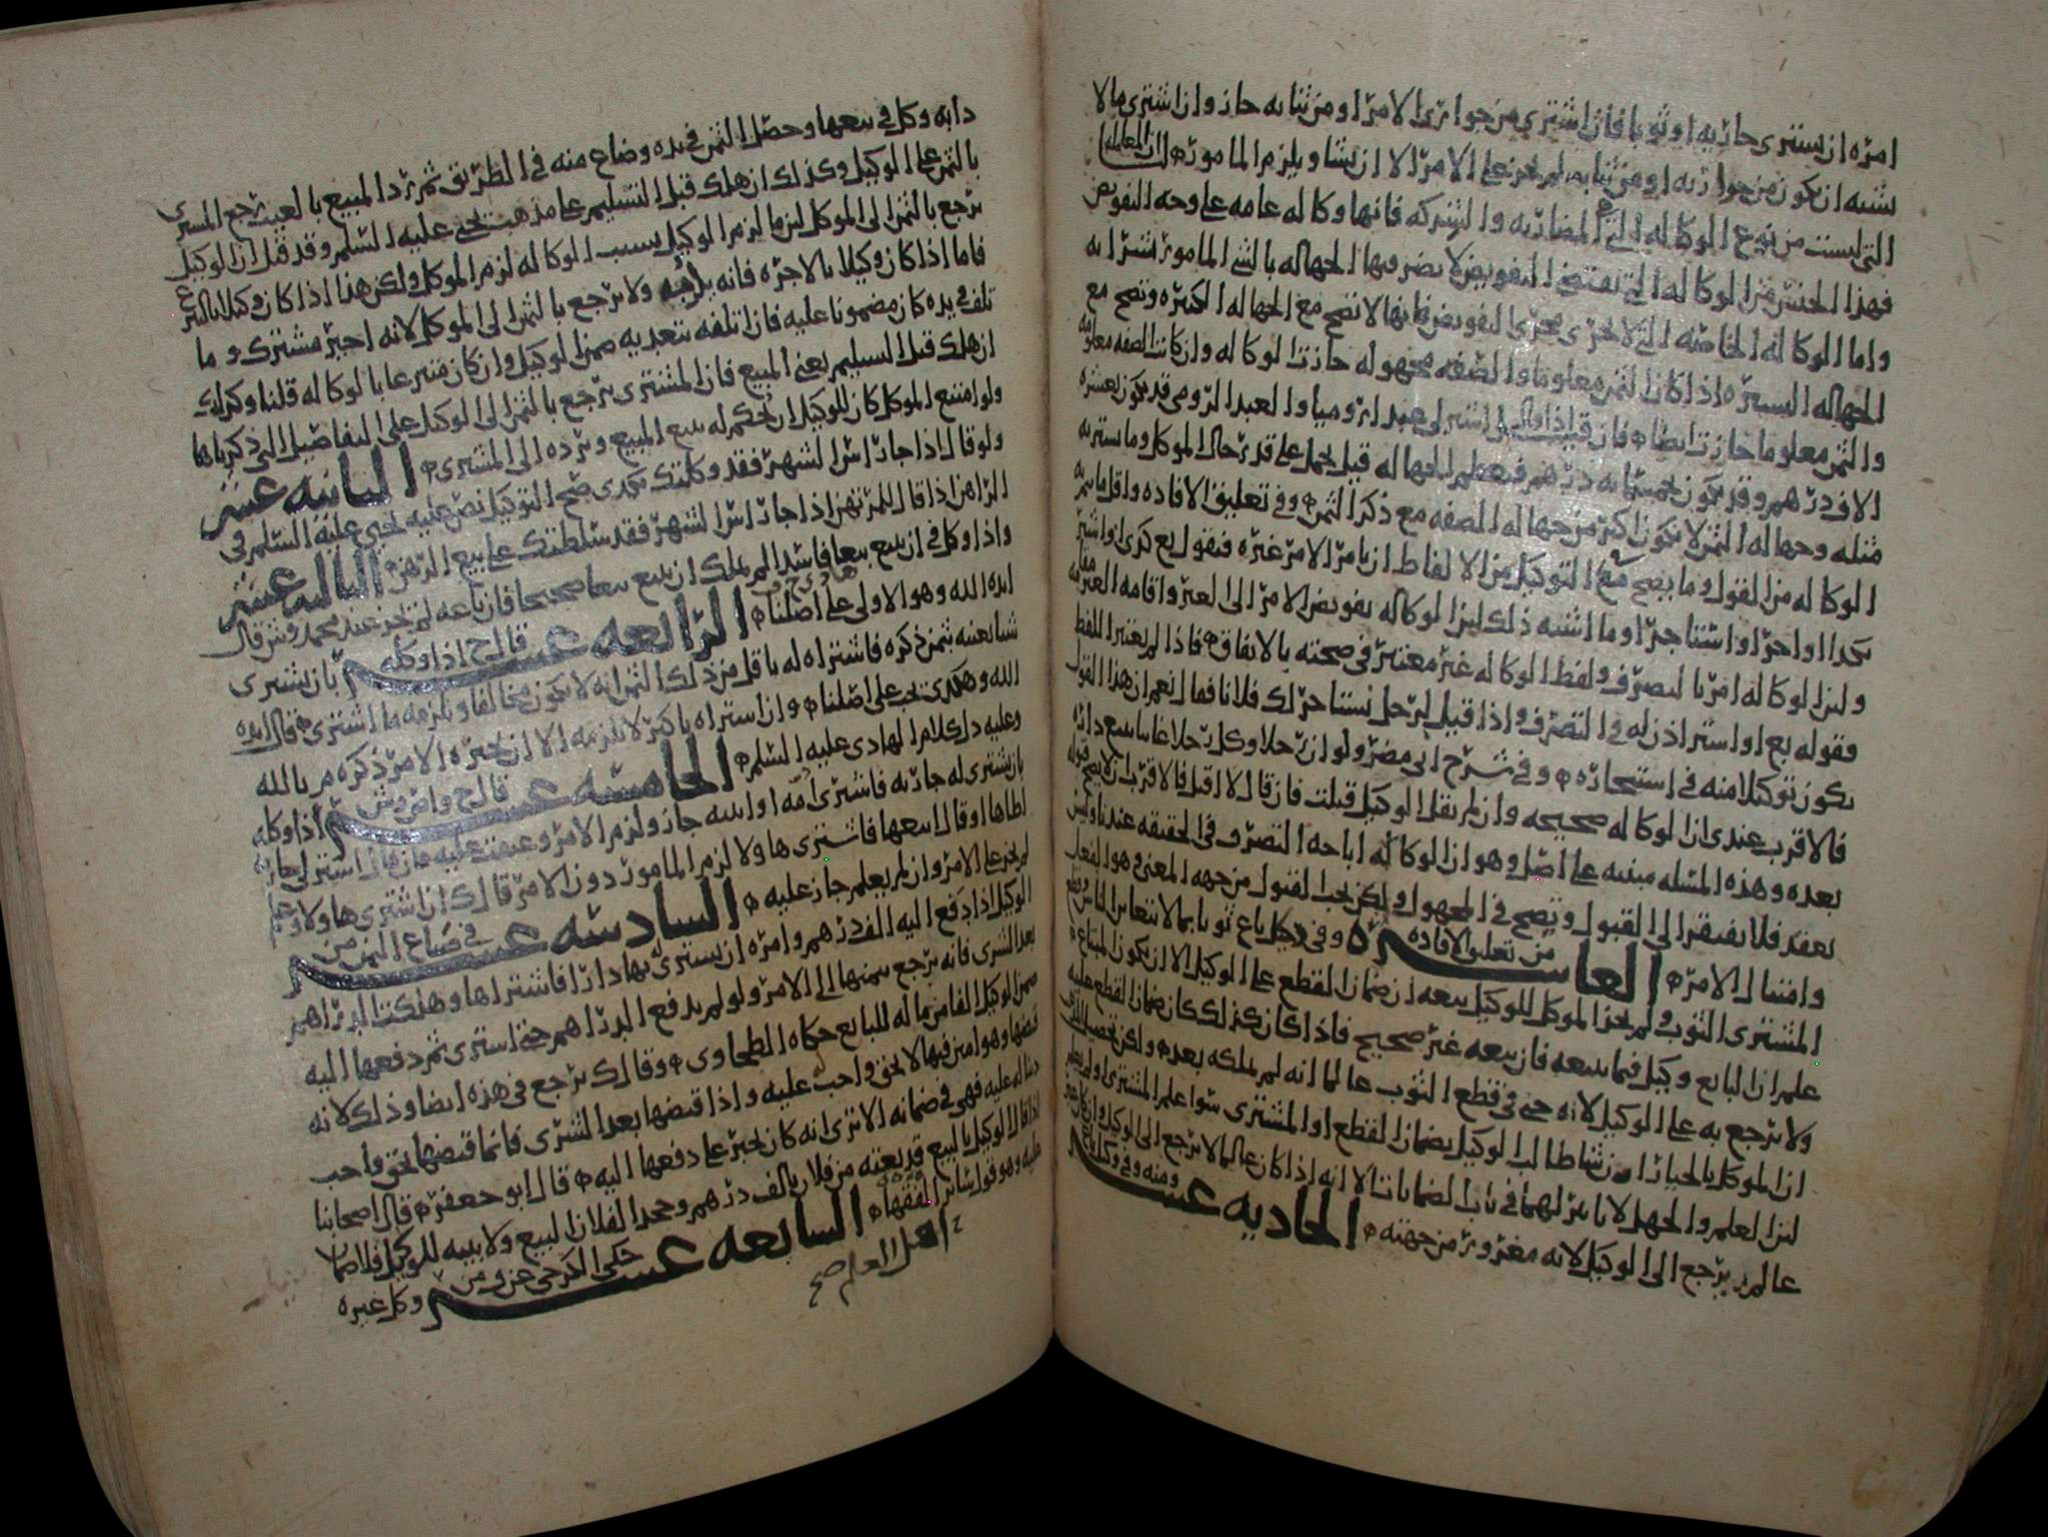 امره ان يشترى جاريه او ثوبا فان اشترى من جوارى الامر او من ثيابه جاز وان اشترى مالا
يشبه ان يكون من جواريه او من ثيابه لم يجز على الامر الا ان يشا ويلزم المامور
التى ليست من نوع الوكاله التى المضاربه والشركه فانها وكاله عامه على وجه التفويض
فهذا الجنس من الوكاله التى تقتضى التفويض لا يضر فيها الجهاله بالشى المامور بشرا به
واما الوكاله الخاصه التى لا تجرى مجرى التفويض فانها لا تصح مع الجهاله الكثيره وتصح مع
الجهاله اليسيره اذا كان الثمن معلوما والصفه مجهوله جازت الوكاله وان كانت الصفه معلومه
والثمن معلوما جازت ايضا فان قال اشتر لى عبدا روميا والعبد الرومى قد يكون بعشره
الاف درهم وقد يكون بخمسمايه درهم قيل يحمل على قدر حال الموكل وما يشتريه
مثله وجهاله الثمن لا تكون اكثر من جهاله الصفه مع ذكر الثمن وفى تعليق الافاده واقل ما يتم
الوكاله من القول وما يصح مع التوكيل من الالفاظ ان يامر الامر غيره فيقول بع كذى او اشتر
كذا او اجر او استاجر او ما اشبه ذلك لان الوكاله تفويض الامر الى الغير واقامه الغير
ولان الوكاله امر بالتصرف ولفظ الوكاله غير معتبر فى صحته بالاتفاق فاذا لم يعتبر اللفظ
فقوله بع او اشتر اذن له فى التصرف واذا قيل لرجل نستاجر لك فلانا فقال نعم ان هذا القول
يكون توكيلا منه فى استيجاره وفى شرح ابى مضر ولو ان رجلا وكل رجلا غايبا ببيع داره
فالاقرب عندى ان الوكاله صحيحه وان لم يقل الوكيل قبلت فان قال لا اقبل فالاقرب ان لا يصح قبوله
بعده وهذه المسله مبنيه على اصل وهو ان الوكاله اباحه التصرف فى الحقيقه عندنا وليس
بعقد فلا يفتقر الى القبول وتصح فى المجهول ولكن يجب القبول من جهه المعنى وهو الفعل
وامتثال الامر العاشره من تعليق الافاده وفى وكيل باع ثوبا بما لا يتغابن الناس
المشترى الثوب ولم يجز الموكل للوكيل بيعه ان ضمان القطع على الوكيل الا ان يكون المبتاع
علم ان البايع وكيل فيما يبيعه فان بيعه غير صحيح فاذا كان كذلك كان ضمان القطع عليه
ولا يرجع به على الوكيل لانه جنى فى قطع الثوب عالما انه لم يملكه بعد ولكن تحصيل
ان الموكل بالخيار ان شا طالب الوكيل بضمان القطع او المشترى سوا علم المشترى او لم يعلم
لان العلم والجهل لا تاثير لهما فى باب الضمانات الا انه اذا كان عالما لا يرجع الى الوكيل وان كان غير
عالم به يرجع الى الوكيل لانه مغرور من جهته الحاديه عشر ومنه وفى وكيل
دابه وكل فى بيعها وحصل الثمن فى يده وضاع منه فى الطريق ثم رد المبيع بالعيب رجع المشترى
بالثمن على الوكيل وكذلك ان هلك قبل التسليم على مذهب يحيى عليه السلم وقد قيل ان الوكيل
يرجع بالثمن الى الموكل لان ما لزم الوكيل بسبب الوكاله لزم الموكل ولكن هذا اذا كان وكيلا بالتبرع
فاما اذا كان وكيلا بالاجره فانه يلزمه ولا يرجع بالثمن الى الموكل لانه اجير مشترك وما
تلف فى يده كان مضمونا عليه فان اتلفه بتعديه ضمن الوكيل وان كان متبرعا بالوكاله قلنا وكذلك
ان هلك قبل التسليم يعنى المبيع فان المشترى يرجع بالثمن الى الوكيل على التفاصيل التى ذكرناها
ولو امتنع الموكل كان للوكيل ان يحكم له ببيع المبيع ويرده الى المشترى الثانيه عشر
ولو قال اذا جا راس الشهر فقد وكلتك بكذى صح التوكيل نص عليه يحيى عليه السلم فى
الراهن اذا قال للمرتهن اذا جا راس الشهر فقد سلطتك على بيع الرهن الثالثه عشر
واذا وكل فى ان يبيع بيعا فاسدا لم يملك ان يبيع بيعا صحيحا فان باعه لم يجز عند محمد وش قال
ايده الله وهو الاولى على اصلنا الرابعه عشر قال ح اذا وكله بان يشترى
شيا بعينه بثمن ذكره فاشتراه له باقل من ذلك الثمن انه لا يكون مخالفا ويلزمه ما اشترى قال ايده
الله وهكذى يجب على اصلنا وان اشتراه باكثر لا يلزمه الا ان يجيزه الامر ذكره م بالله
وعليه دل كلام الهادى عليه السلم الخامسه عشر قال ح واص وش اذا وكله
بان يشترى له جاريه فاشترى امه او ابنته جاز ولزم الامر وعتقت عليه فان قال اشتر لى جاريه
لاطاها او قال ابيعها فاشترى ها ولا لزم المامور دون الامر قال ك ان اشترى ها ولا وعلم
لم يجز على الامر وان لم يعلم جاز عليه السادسه عشر فى ضياع الثمن من
الوكيل اذا دفع اليه الف درهم وامره ان يشترى له بها دارا فاشتراها وهلكت الدراهم
بعد الشرى فانه يرجع بثمنها الى الامر ولو لم يدفع الدراهم حتى اشترى ثم دفعها اليه
ضمن الوكيل الفا من ماله للبايع حكاه الطحاوى وقال ك يرجع فى هذه ايضا وذلك لانه
قبضها وهو امين فيها لا بحق واجب عليه واذا قبضها بعد الشرى فانما قبضها بحق واجب
دينا له عليه فهى فى ضمانه الا ترى انه كان يجبر على دفعها اليه قال ابو جعفر قال اصحابنا
اذا قال الوكيل بالبيع قد بعته من فلان بالف درهم وجحد الفلان البيع ولا بينه للوكيل فلا ضمان
عليه وهو قول ساير الفقها السابعه عشر حكى الكرخى عن ومن وكل غيره
اهل العلم صح